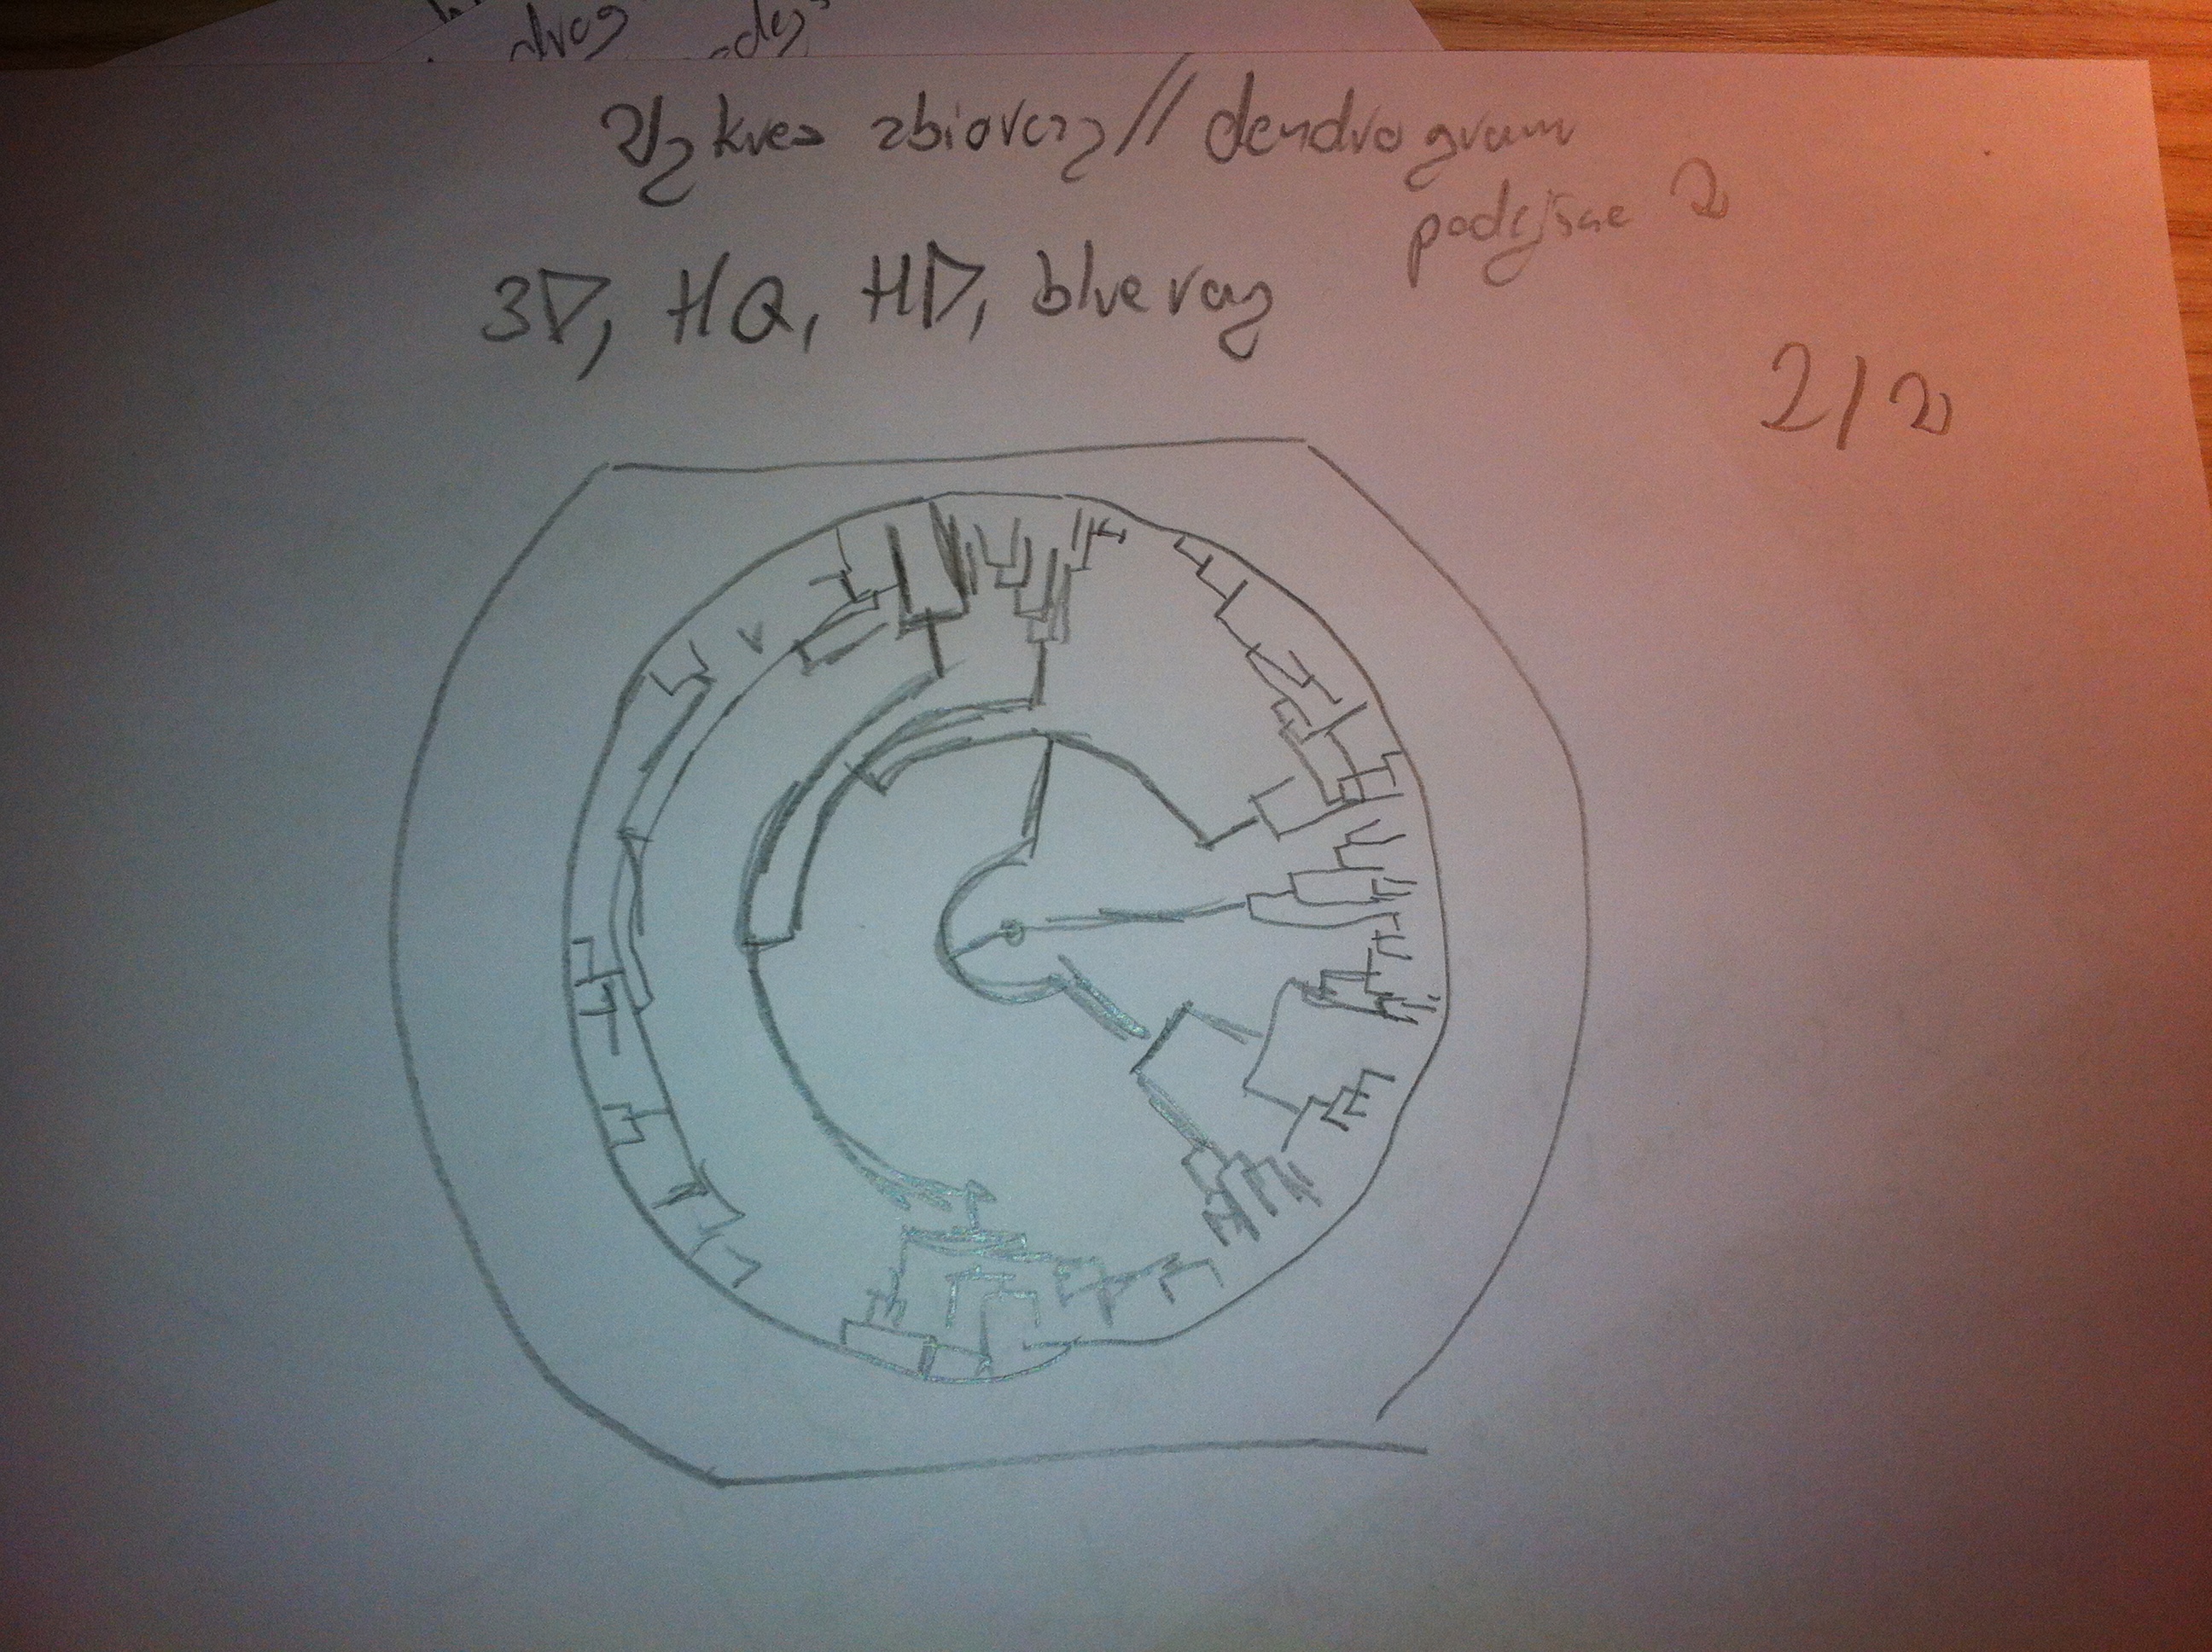 Wykres zbiorczy // dendrogram
podejście 2
3D, HQ, HD, blue ray
2/2